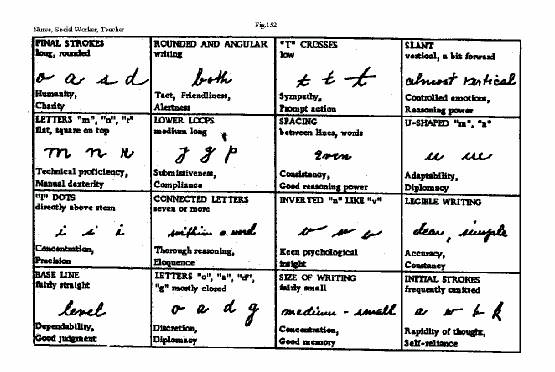 Fig.152
Nurse, Social Worker, Teacher
FINAL STROKES
long, rounded
o a s d
Humanity,
Charity
ROUNDED AND ANGULAR
writing
both
Tact, Friendliness,
Alertness
"T" CROSSES
low
t t t
Sympathy,
Prompt action
SLANT
vertical, a bit forward
almost vertical
Controlled emotions,
Reasoning power
LETTERS "m", "n", "r"
flat, square on top
m n r
Technical proficiency,
Manual dexterity
LOWER LOOPS
medium long
y g p
Submissiveness,
Compliance
SPACING
between lines, words
Even
Consistency,
Good reasoning power
U-SHAPED "m", "n"
Adaptability,
Diplomacy
"I" DOTS
directly above stem
i i i
Concentration,
Precision
CONNECTED LETTERS
seven or more
within a word
Thorough reasoning,
Eloquence
INVERTED "n" LIKE "v"
Keen psychological
insight
LEGIBLE WRITING
clear, simple
Accuracy,
Constancy
BASE LINE
fairly straight
level
Dependability,
Good judgment
LETTERS "o", "a", "d",
"g" mostly closed
o a d g
Discretion,
Diplomacy
SIZE OF WRITING
fairly small
medium - small
Concentration,
Good memory
INITIAL STROKES
frequently omitted
a w t k
Rapidity of thought,
Self-reliance